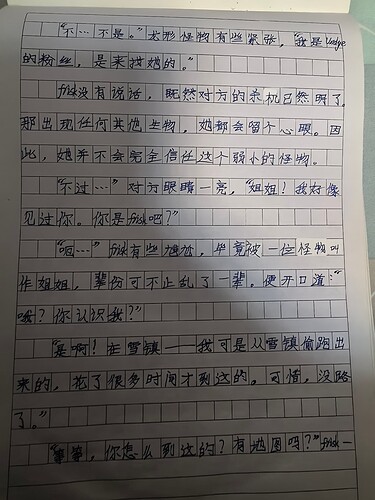 “不…不是。”犬形怪物有些紧张，“我是Undyne
的粉丝，是来找她的。”
frisk没有说话，既然对方的杀机已然明了，
那出现任何其他生物，她都会留个心眼。因
此，她并不会完全信任这个弱小的怪物。
“不过…”对方眼睛一亮，“姐姐！我好像
见过你。你是frisk吧？”
“呃…”frisk有些尴尬，毕竟被一位怪物叫
作姐姐，辈份可不止乱了一辈。便开口道：“
哦？你认识我？”
“是啊！在雪镇——我可是从雪镇偷跑出
来的，花了很多时间才到这的。可惜，没路
了。”
“等等，你怎么到这的？有地图吗？”frisk一